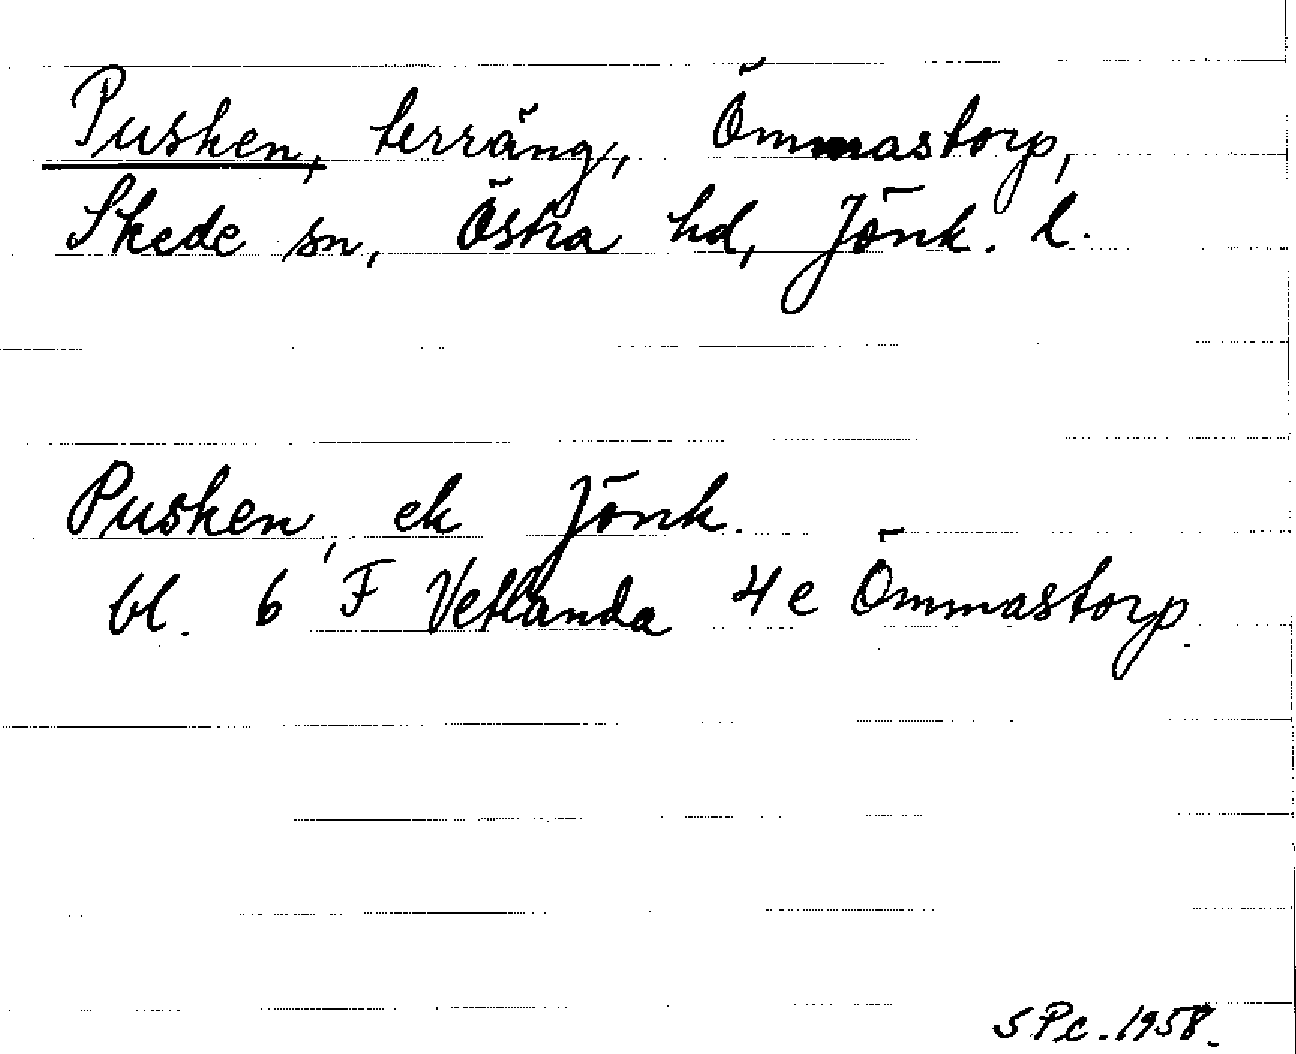 Pusken, terräng, Ömmastorp,
Skede sn, Östra hd, Jönk. l.
Pusken, ek Jönk.
bl. 6 F Vetlanda 4e Ömmastorp.
SPc. 1958.